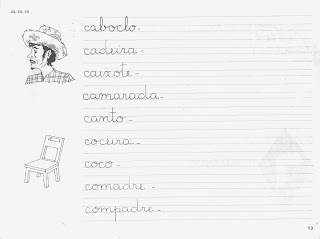 caboclo -
cadeira -
caixote -
camarada -
canto -
coceira -
coco -
comadre -
compadre -
13